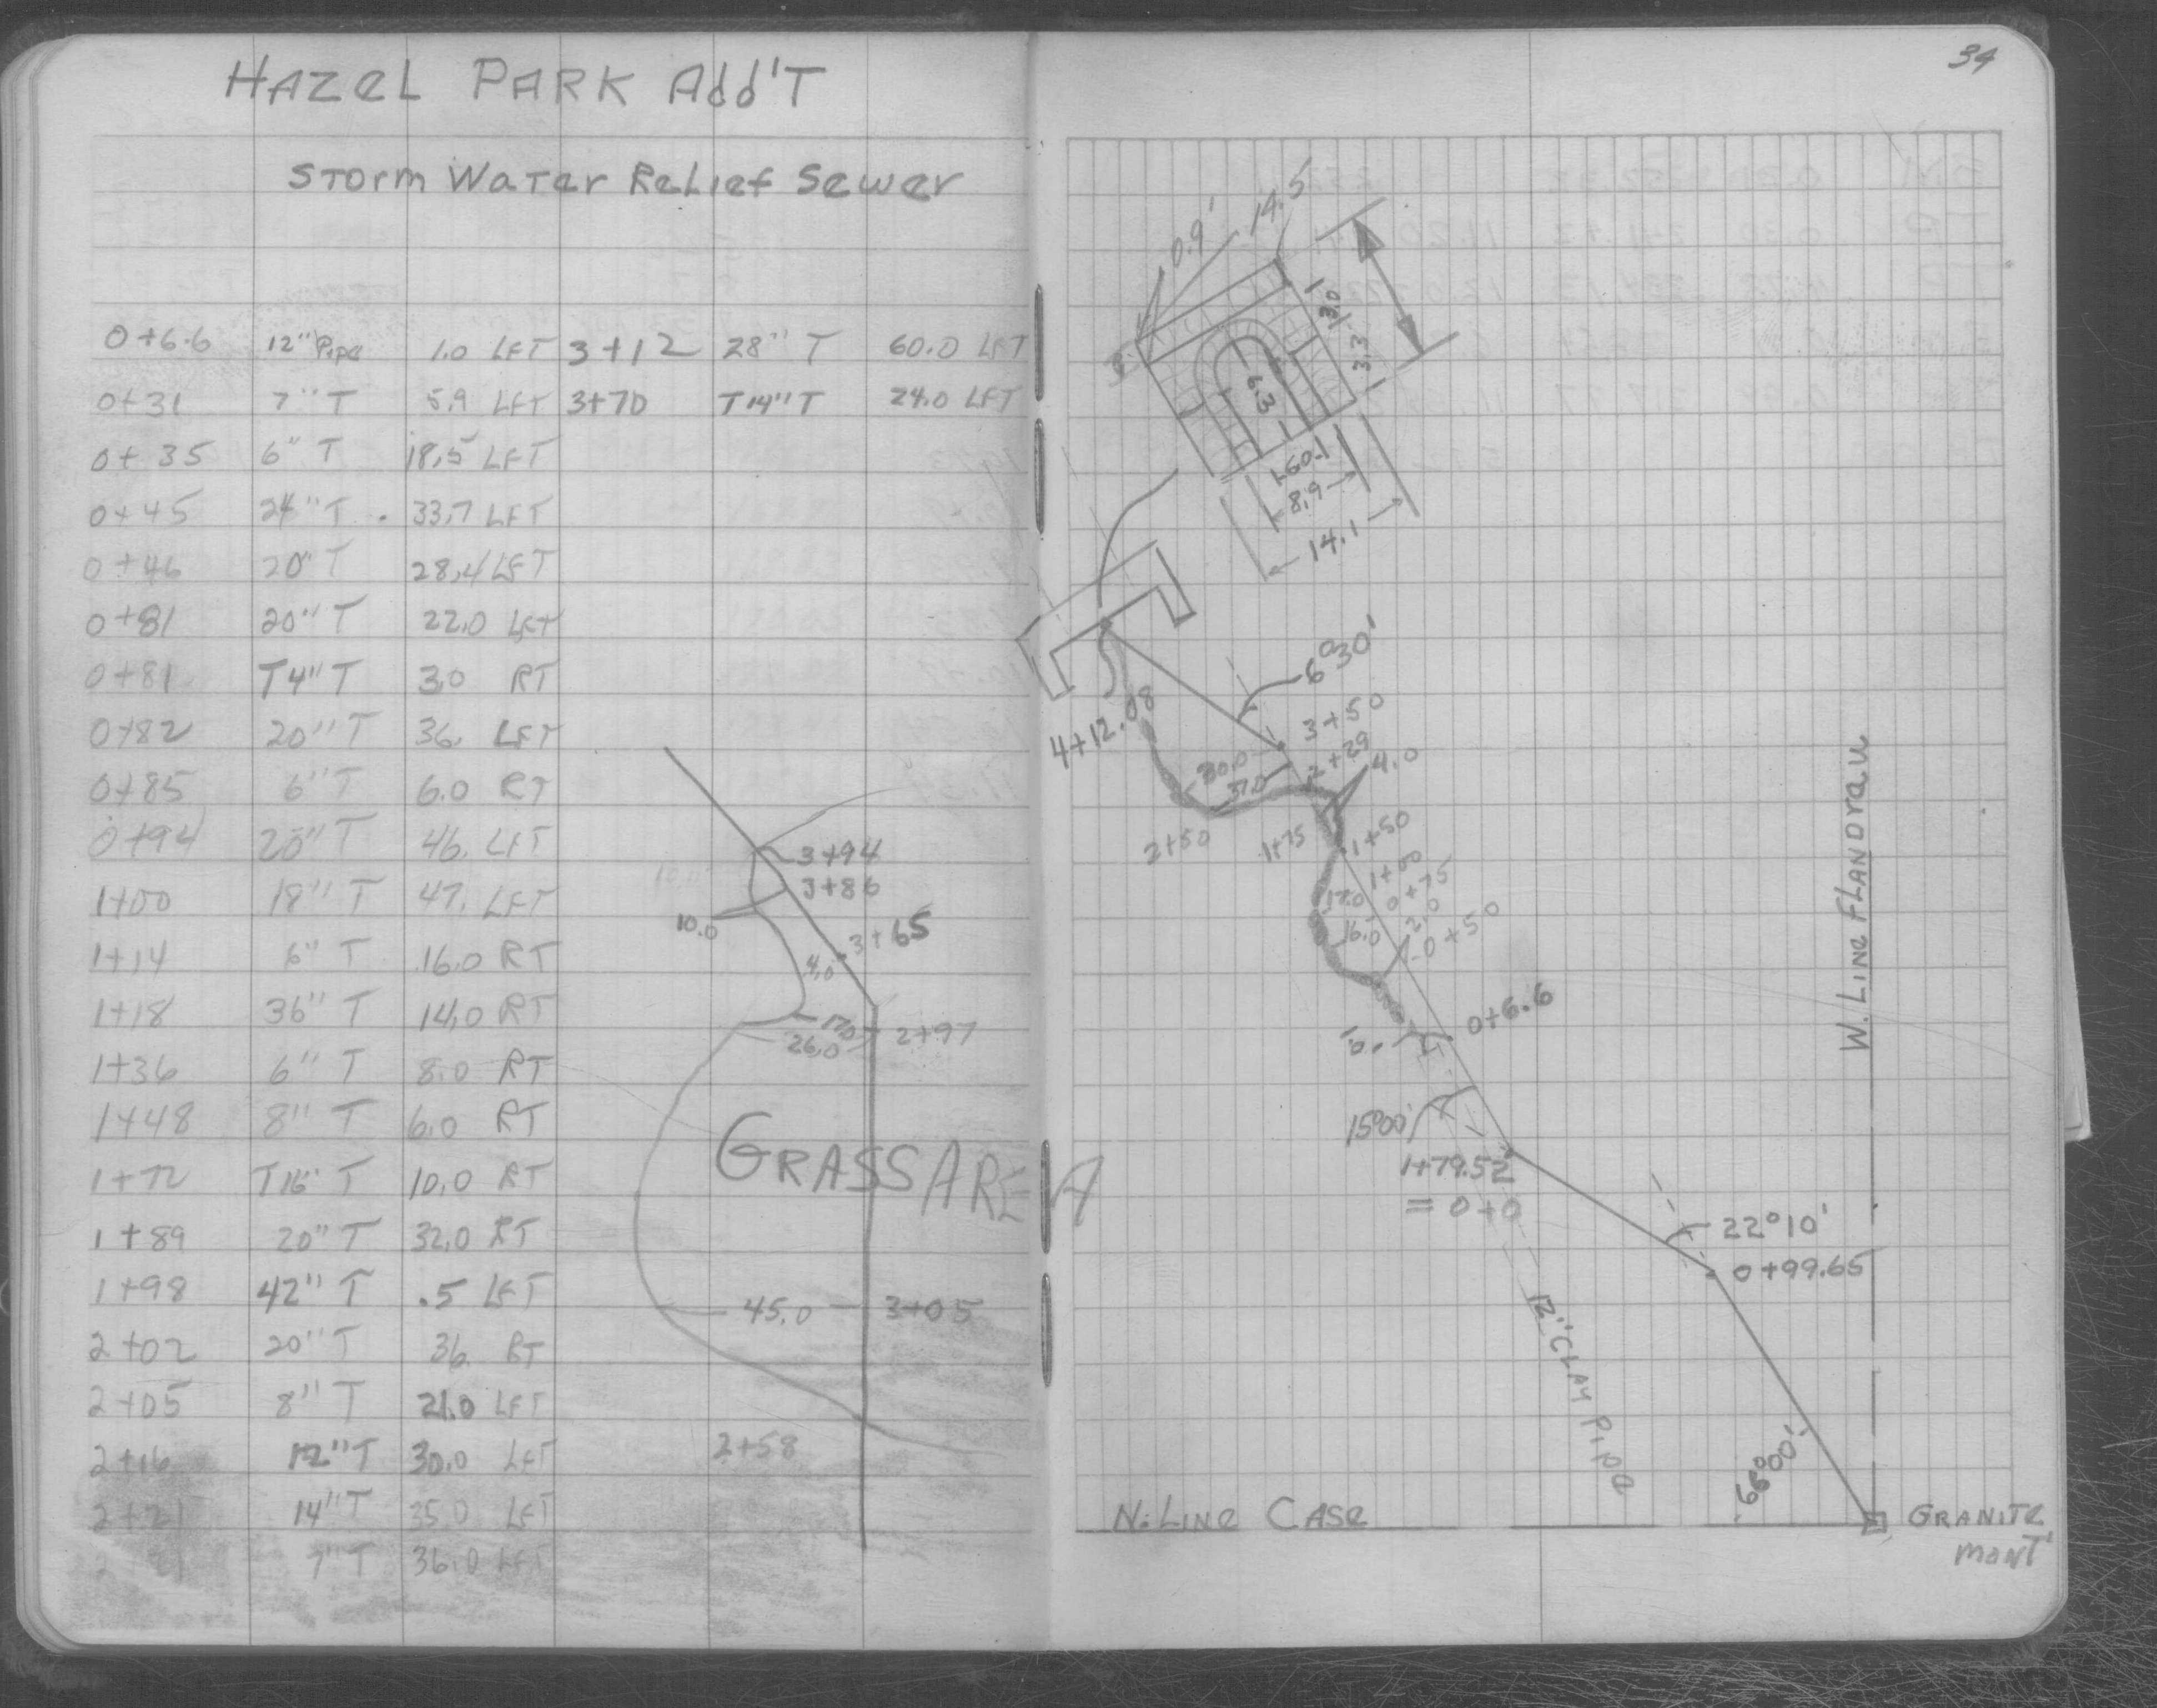 HAZEL PARK Add'T
STOrm WaTer ReLief Sewer
0+6.6 12" Pipe 1.0 LFT 3+12 28" T 60.0 LFT
0+31 7" T 5.9 LFT 3+70 T14" T 24.0 LFT
0+35 6" T 18.5 LFT
0+45 24" T 33.7 LFT
0+46 20" T 28.4 LFT
0+81 20" T 22.0 LFT
0+81 T4" T 3.0 RT
0+82 20" T 36. LFT
0+85 6" T 6.0 RT
0+94 20" T 46. LFT
1+00 18" T 47. LFT
1+14 6" T 16.0 RT
1+18 36" T 14.0 RT
1+36 6" T 8.0 RT
1+48 8" T 6.0 RT
1+72 T16" T 10.0 RT
1+89 20" T 32.0 RT
1+98 42" T .5 LFT
2+02 20" T 36. RT
2+05 8" T 21.0 LFT
2+16 12" T 30.0 LFT
2+21 14" T 35.0 LFT
7" T 36.0 LFT
3+94
3+86
10.0
3+65
4.0
17.0
26.0
2+97
GRASS AREA
45.0
3+05
2+58
34
0.9'
14.5
3.0
3.3
6.3
8.9
14.1
6°30'
4+12.08
3+50
2+29
4.0
30.0
37.0
2+50
1+75
1+50
1+00
0+75
17.0
16.0
2.0
0+50
0+6.6
1.0
15°00'
1+79.52
= 0+0
22°10'
0+99.65
12" CLAY PIPe
W. LINe FLANDrau
66°00'
N. LINe CASe
GRANITe
monT'